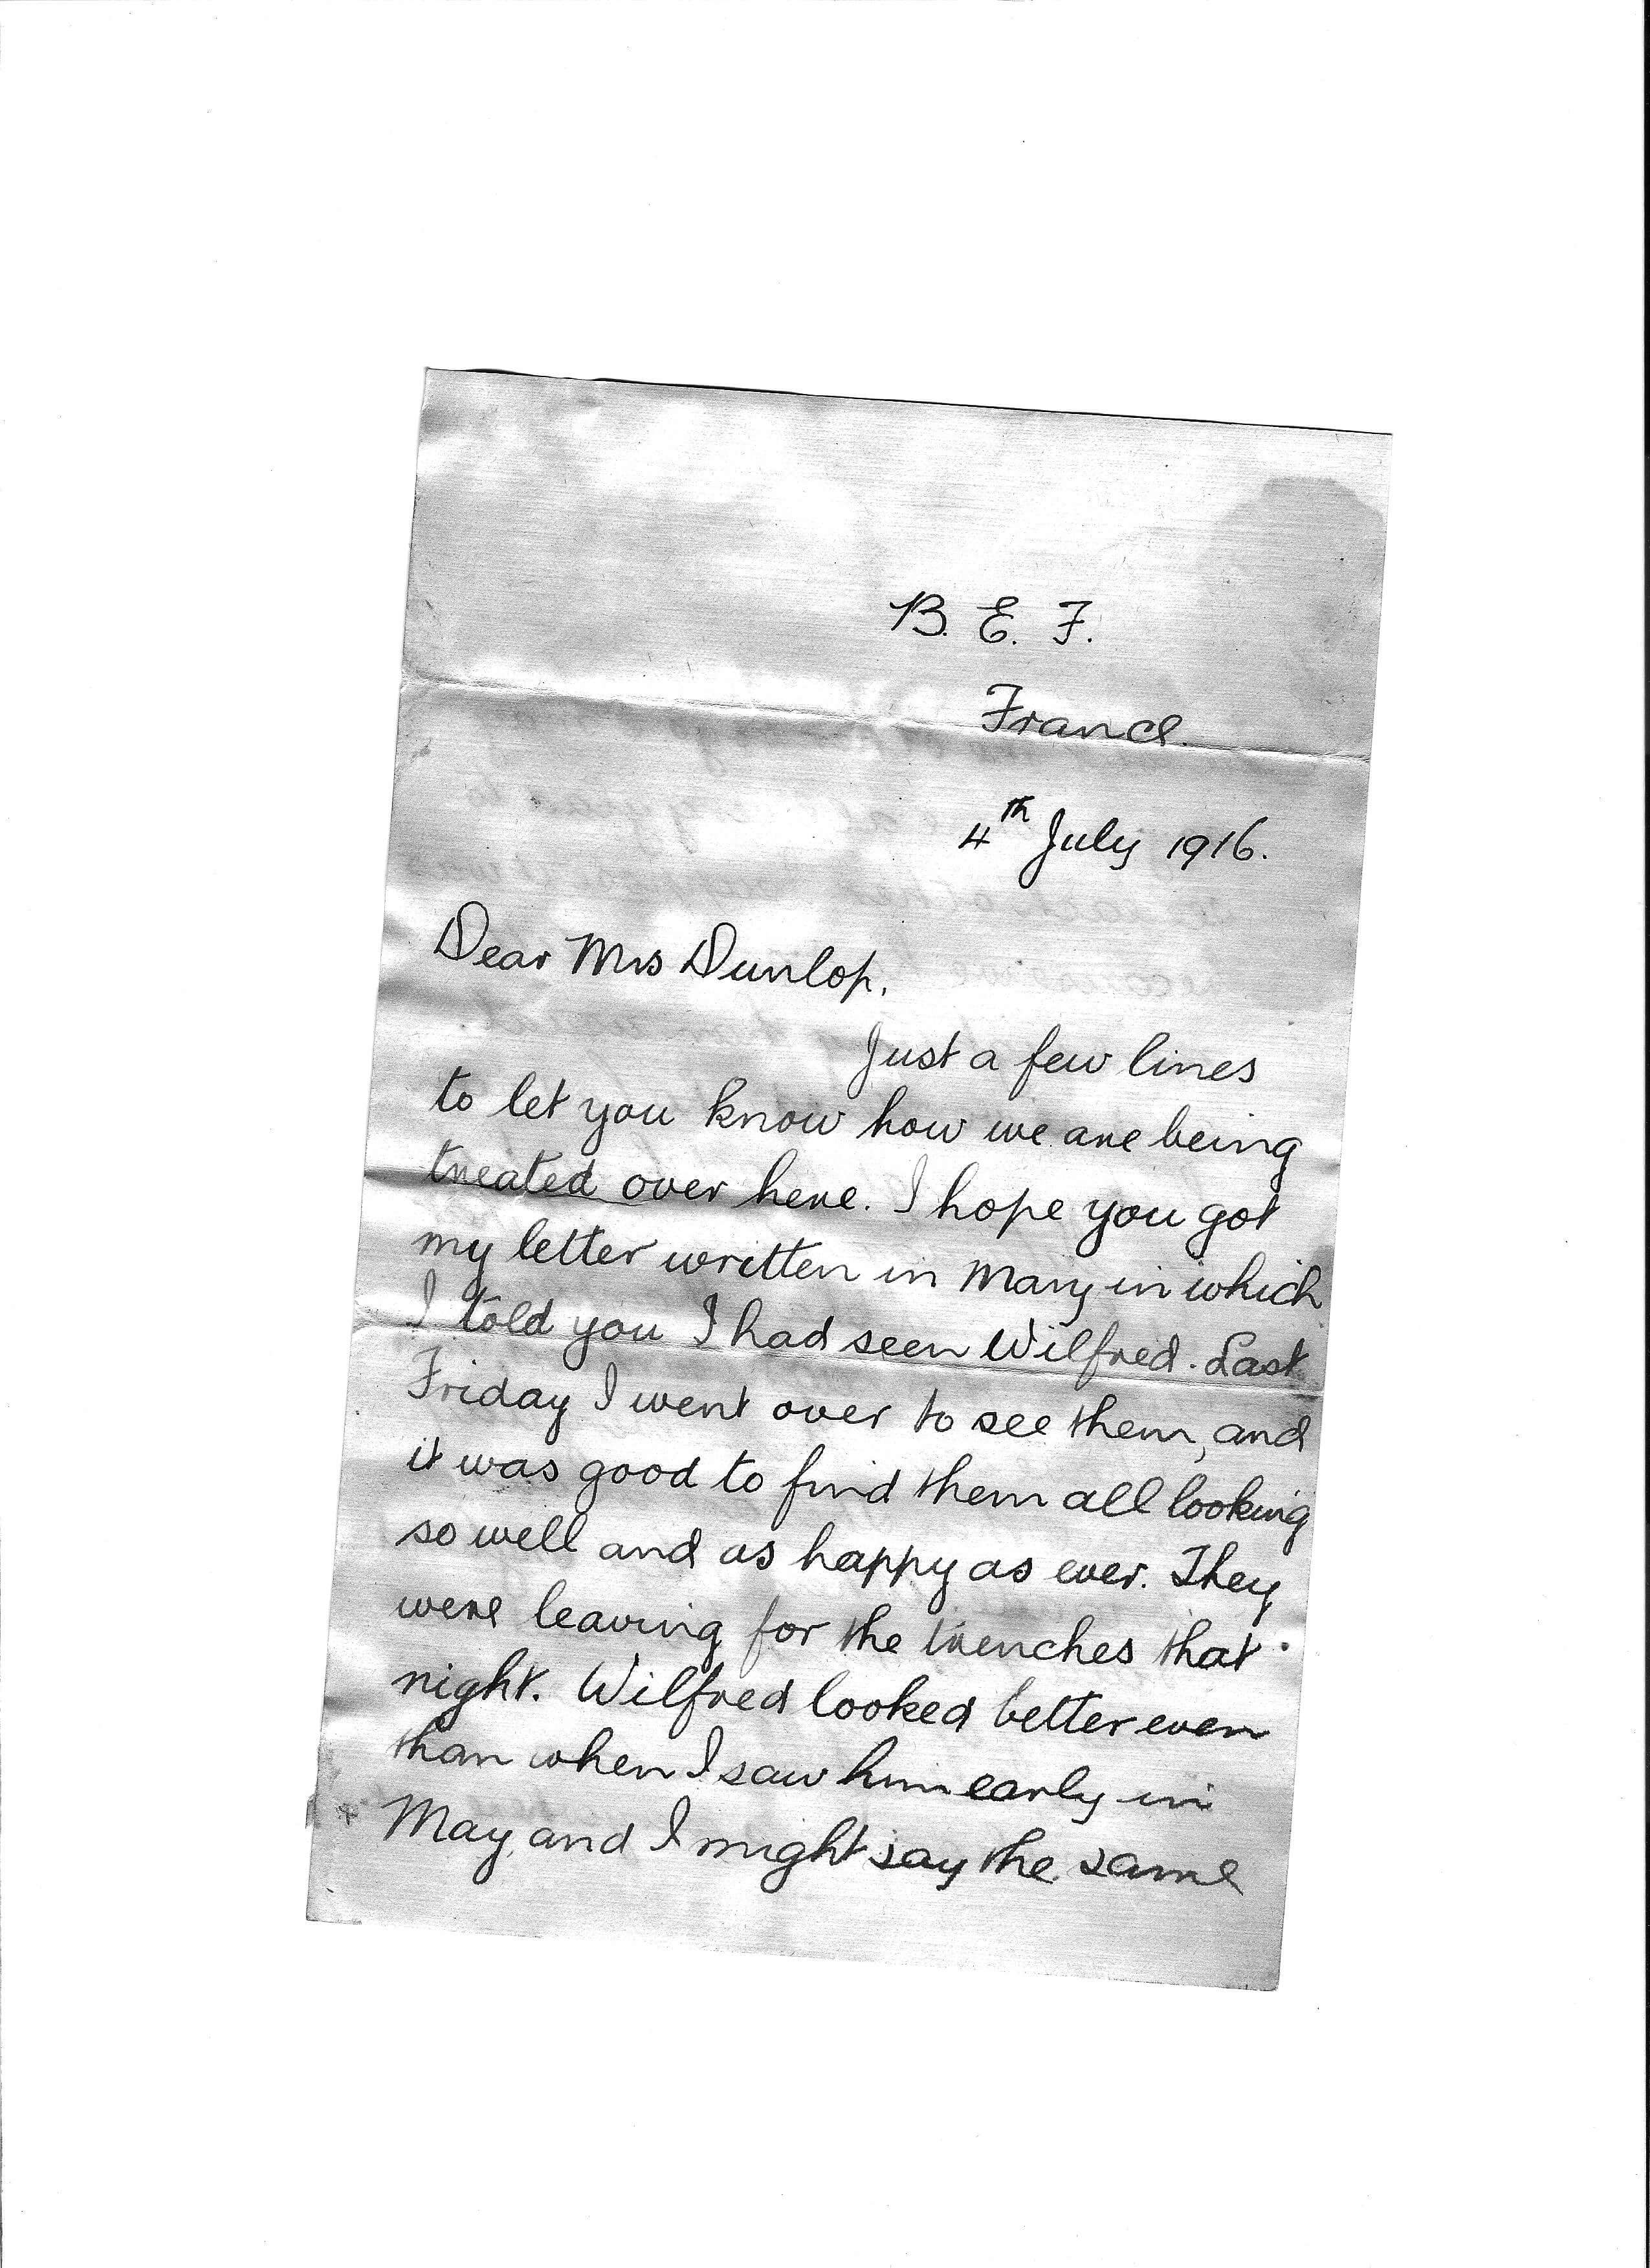 B. E. F.
France.
4th July 1916.
Dear Mrs Dunlop,
Just a few lines
to let you know how we are being
treated over here. I hope you got
my letter written in May in which
I told you I had seen Wilfred. Last
Friday I went over to see them, and
it was good to find them all looking
so well and as happy as ever. They
were leaving for the trenches that
night. Wilfred looked better even
than when I saw him early in
May, and I might say the same